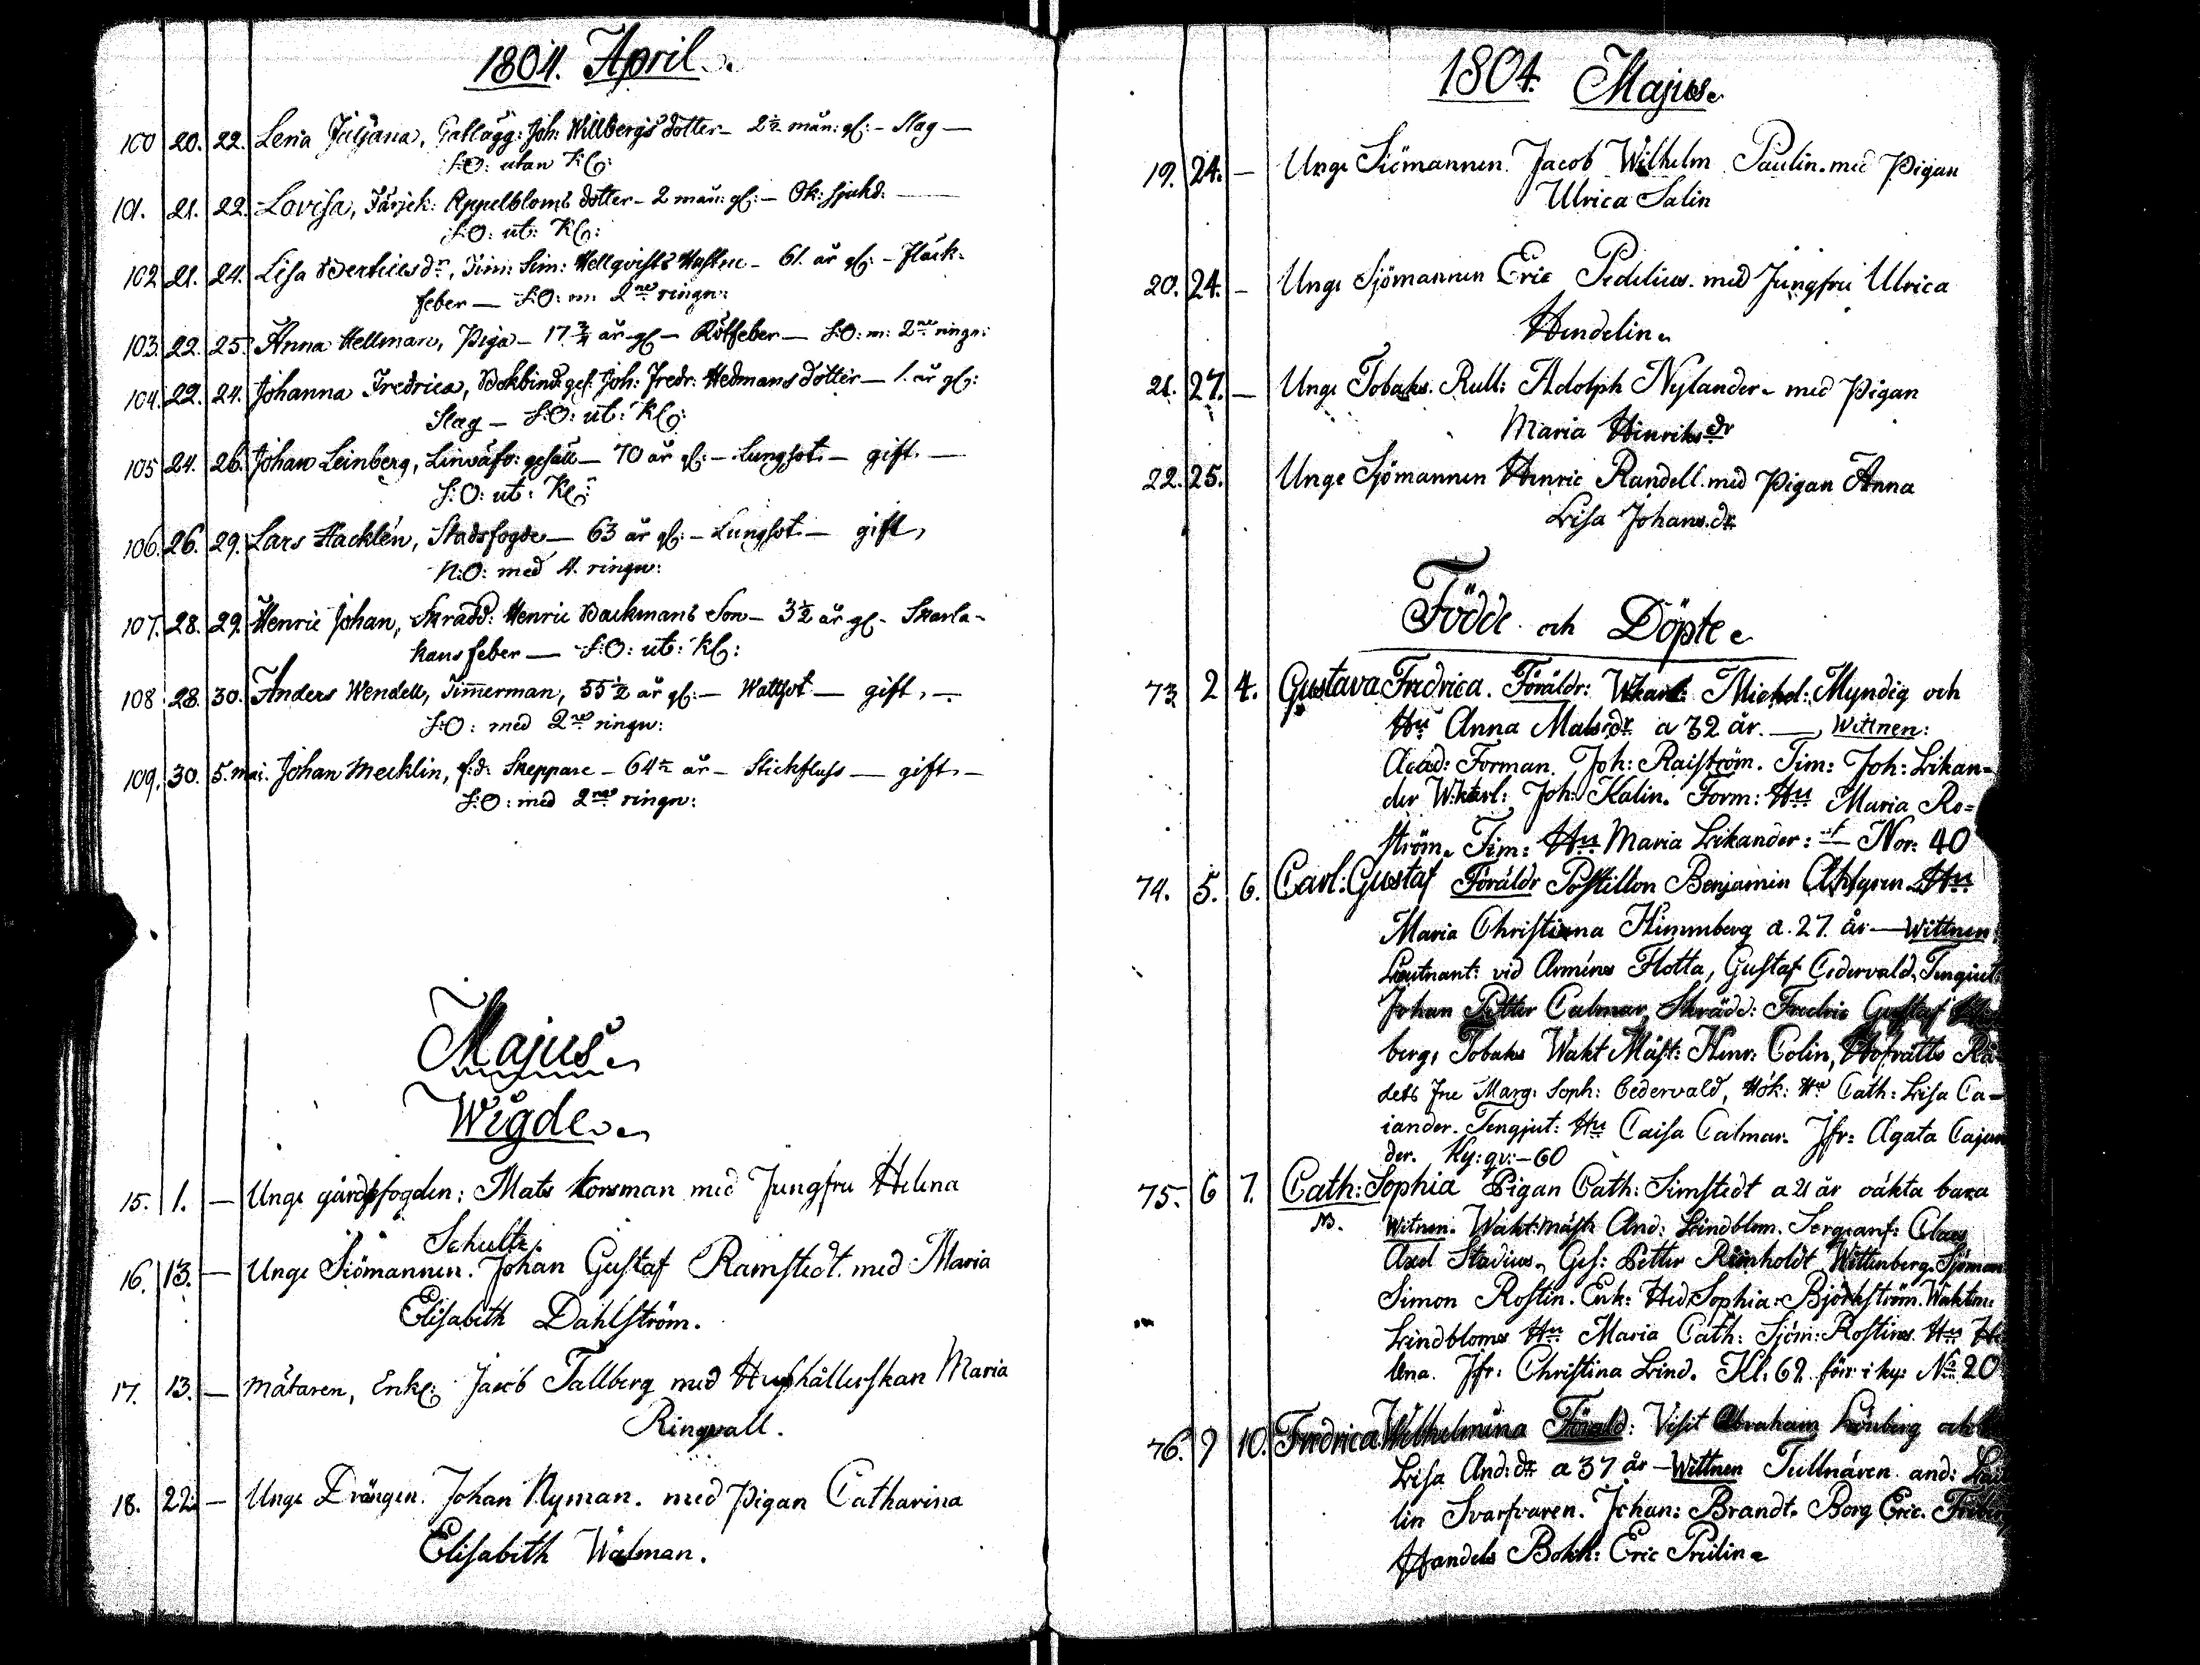 1804. April.
100 20. 22. Lena Juljana, Gatlägg: Joh: Willbergs dotter - 2½ mån: gl: - Slag -
S:O: utan Kl:
101. 21. 22. Lovisa, Färjek: Appelbloms dotter - 2 mån: gl: - Ok: sjukd:
S:O: ut: Kl:
102 21. 24. Lisa Bertilsdr, Tim: Sim: Hellqvists Hustru - 61. år gl: - Fläck-
feber - S:O: m: 2ne ringn:
103. 22. 25. Anna Hellman, Piga - 17 3/4 år gl - Rötfeber - S:O: m: 2ne ringn:
104. 22. 24. Johanna Fredrica, Bokbind: ges: Joh: Fredr: Hedmans dotter - 1. år gl:
Slag - S:O: ut: Kl:
105 24. 26. Johan Leinberg, Linväfv: gesäll - 70 år gl: - Lungsot. - gift. -
S:O: ut: Kl:
106. 26. 29. Lars Hacklén, Stadsfogde - 63 år gl: - Lungsot - gift,
N:O: med 4. ringn:
107. 28. 29. Henric Johan, Skrädd: Henric Backmans Son - 3½ år gl - Skarla-
kans feber - S:O: ut: Kl:
108 28. 30. Anders Wendell, Timmerman, 55½ år gl: - Wattsot - gift, -
S:O: med 2ne ringn:
109. 30. 5. mai. Johan Mecklin, f:d: Skeppare - 64½ år - Stickfluss - gift -
S:O: med 2ne ringn:
Majus.
Wigde.
15. 1. - Unge gårdsfogden: Mats Korsman med Jungfru Helena
Schultz.
16. 13. - Unge Siömannen. Johan Gustaf Ramstedt. med Maria
Elisabeth Dahlström.
17. 13. - Mätaren, Enkl: Jacob Tallberg med Hushållerskan Maria
Ringwall.
18. 22. - Unge Drängen. Johan Nyman. med Pigan Catharina
Elisabith Walman.
1804. Majus.
19. 24. - Unge Siömannen Jacob Wilhelm Paulin. med Pigan
Ulrica Salin
20. 24. - Unge Sjömannen Eric Pedelius. med Jungfru Ulrica
Hendelin.
21. 27. - Unge Tobaks. Rull: Adolph Nylander. med Pigan
Maria Hinriksdr
22. 25. Unge Sjömannen Henric Randell. med Pigan Anna
Lisa Johans.dr
Födde och Döpte.
73 2 4. Gustava Fredrica. Föräldr: Wkarl: Michel: Myndig och
Hu Anna Matsdr a 32 år. - Wittnen:
Acad: Forman. Joh: Raiström. Tim: Joh: Likan-
der W:karl: Joh: Kalin. Form: Hu Maria Ro-
ström. Tim: Hu Maria Likander: Nor: 40
74. 5. 6. Carl: Gustaf Föräldr Postillon Benjamin Ahlgren Hu
Maria Christina Himmberg a. 27. år - Wittnen:
Lieutnant: vid Arméns Flotta, Gustaf Cedervald, Tengiut:
Johan Petter Calmar, Skrädd: Fredric Gustaf
berg, Tobaks Wakt Mäst: Henr: Colin, Hofrätts Rå-
dets Fru Marg: Soph: Cedervald, Hök: Hu Cath: Lisa Ca-
iander. Tengjut: Hu Caisa Calmar. Jfr: Agata Cajan
der. Ky: qv: - 60
75. 6 7. Cath: Sophia Pigan Cath: Simstedt a 21 år oäkta bara
Witnen. Wakt:mäst And: Lindblom. Sergeant: Claes
Axel Stadius. Ges: Petter Reinholdt Wittenberg. Sjöman
Simon Rostin. Enk: Hed: Sophia: Björkström. Waktm:
Lindbloms Hu Maria Cath: Sjöm: Rostins Hu He
lena. Jfr: Christina Lind. Kl. 62. förr i ky: No 20
76. 9 10. Fredrica Wilhelmina Föräld: Visit Abraham Lönberg och
Lisa And:dr a 37 år - Wittnen Tullnären. and:
lin Svarfvaren. Johan: Brandt. Borg Eric.
Handels Bokh: Eric Prelin.